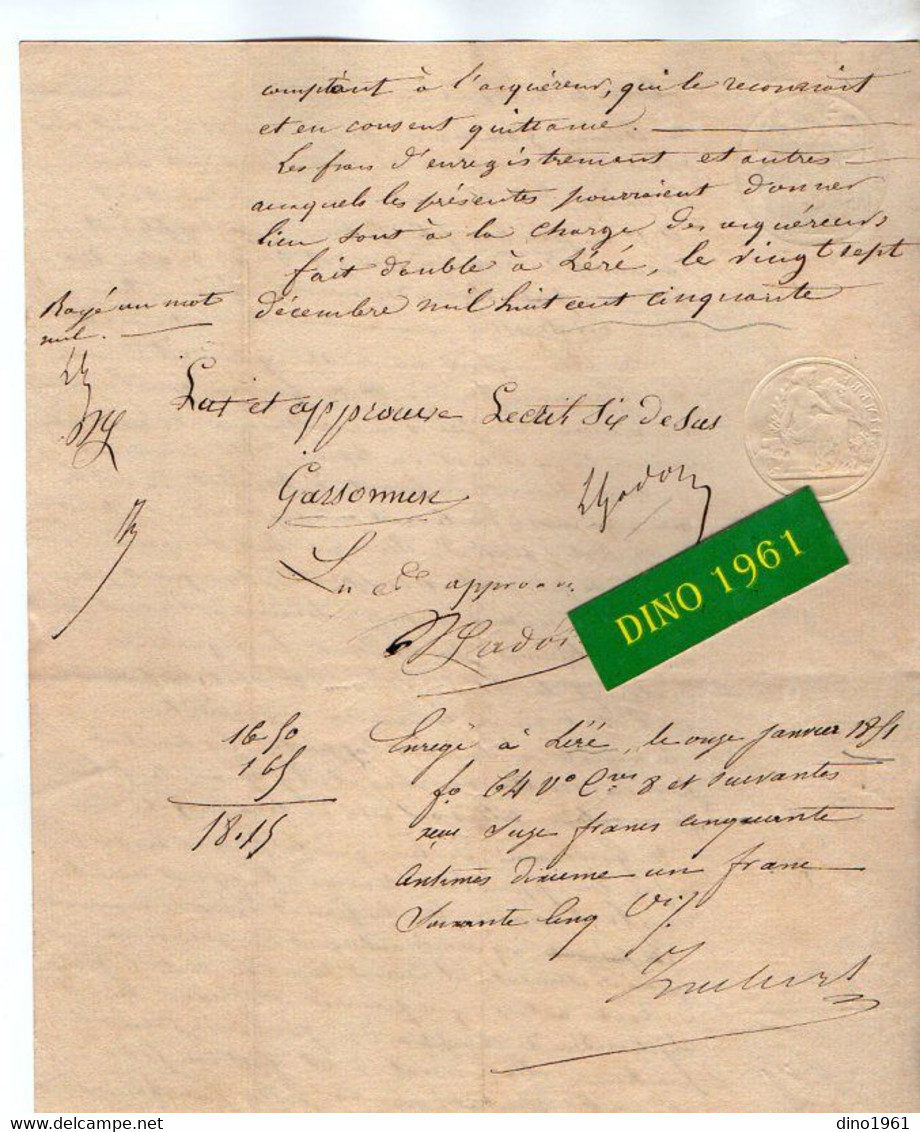 comptant à l'acquéreur, qui le reconnait
et en consent quittance.
Les frais d'enregistrement et autres
auxquels les présentes pourraient donner
lieu sont à la charge des acquéreurs
fait double à Léré, le vingt sept
décembre mil huit cent cinquante
Rayé un mot
nul.
Lut et approuve Lecrit Six de sus
Garsonnin
Lu et approuvé
DINO 1961
16-50
165
18.15
Enregé à Léré, le onze janvier 1851
fo 64 Vo Cses 8 et suivantes
reçu seize francs cinquante
centimes dixieme un franc
soixante cinq
dino1961